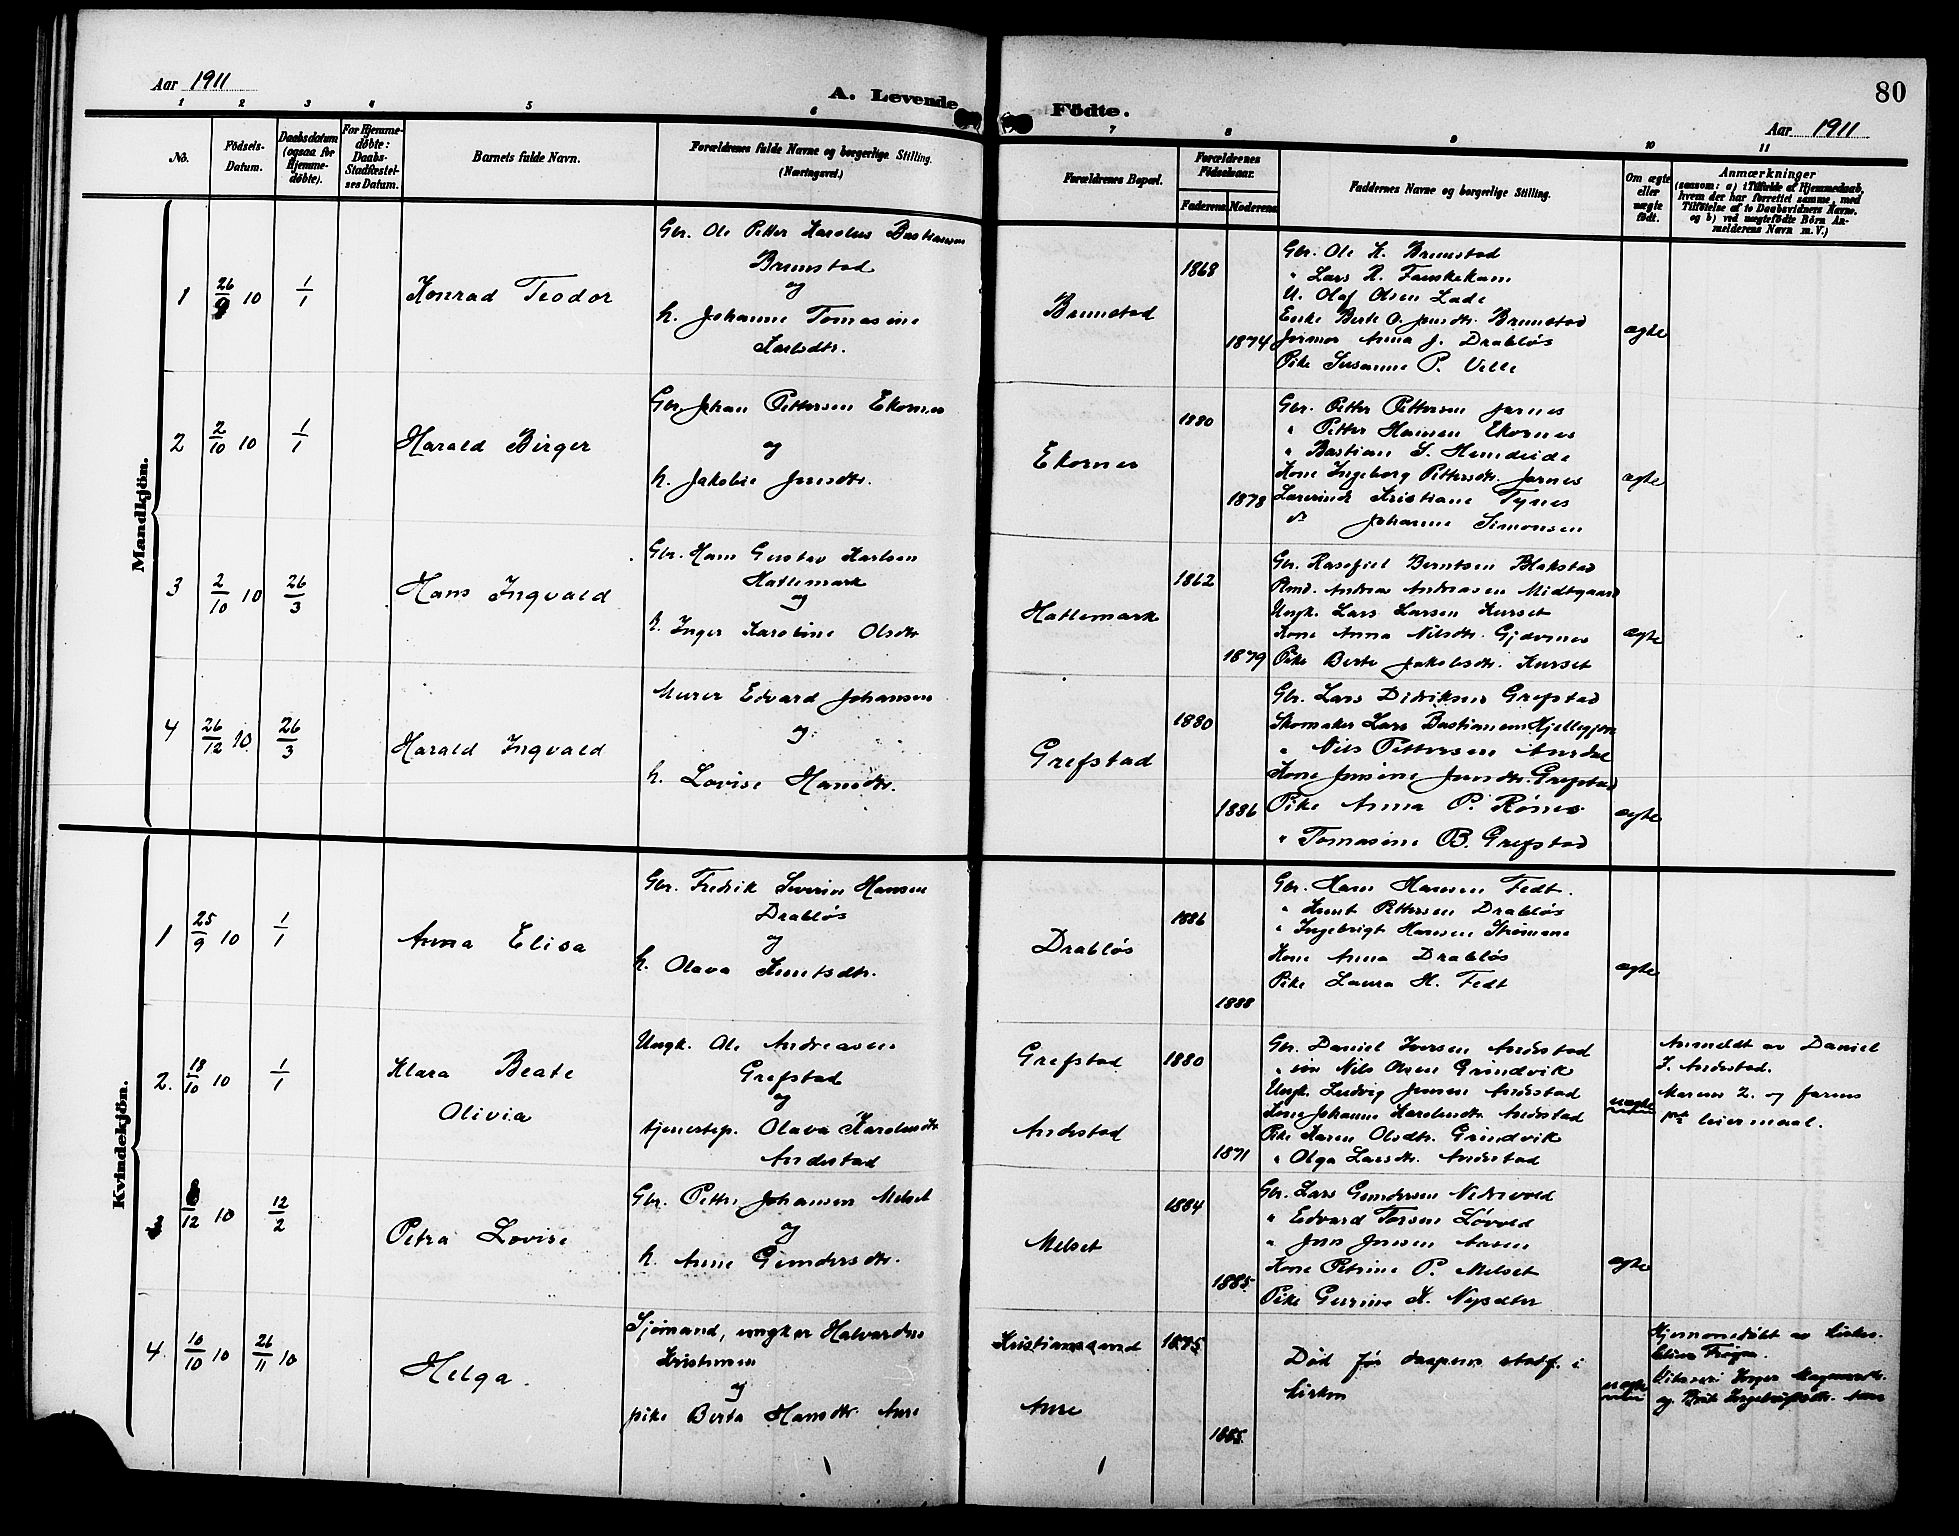 Aar 1911
A. Levende Födte.
80
Aar 1911
1 2 3 4 5 6 7 8 9 10 11
No.
Födsels-Datum.
Daabsdatum (ogsaa for Hjemme-døbte).
For Hjemme-døbte: Daabs-Stadfæstel-ses Datum.
Barnets fulde Navn.
Forældrenes fulde Navne og borgerlige Stilling. (Næringsvei.)
Forældrenes Bopæl.
Forældrenes Födselsaar.
Faderens Moderens
Faddernes Navne og borgerlige Stilling.
Om ægte eller uægte födt.
Anmærkninger
(saasom: a) i Tilfælde af Hjemmedaab, hvem der har forrettet samme, med Tilföielse af to Daabsvidners Navne. og b) ved uægtefödte Börn Anmelderens Navn m. V.)
Mandkjön.
1
26/9 10
1/1
Konrad Teodor
Gbr. Ole Petter Karolus Bastiansen
Brunstad
og
h. Johanne Tomasine
Karlsdtr.
Brunstad
1868
1874
Gbr. Ole K. Brunstad
" Lars R.
U. Olaf Olsen Lade
Enke Berte O. Jensdtr. Brunstad
Jormor Anna J. Drabløs
Pike Susanne P. Velle
ægte
2
2/10 10
1/1
Harald Birger
Gbr. Johan Pettersen Ekornes
og
h. Jakobie Jensdtr.
Ekornes
1880
1878
Gbr. Petter Pettersen Jarnes
" Petter Hansen Ekornes
" Bastian S.
Kone Ingeborg Pettersdtr. Jarnes
Lærerinde Kristiane Tynes
do Johanne Simonsen
ægte
3
2/10 10
26/3
Hans Ingvald
Gbr. Hans Gustav Karlsen
Hatlemark
og
h. Inger Karoline Olsdtr
Hatlemark
1862
1879
Gbr. Rasefiel Berntsen Blakstad
Rmd. Andreas Andreasen Midtgaard
Ungk. Lars Larsen Kurset
Kone Anna Nilsdtr. Gjævenes
Pike Berte Jakobsdtr. Kurset
ægte
4
26/12 10
26/3
Harald Ingvald
Murer Edvard Johansen
og
h. Lovise Hansdtr.
Grefstad
1880
1886
Gbr. Lars Didriksen Grefstad
Skomaker Lars Bastiansen
" Nils Pettersen Aursdal
Kone Jensine Jensdtr. Grefstad
Pike Anna P. Rønes
" Tomasine B. Grefstad
ægte
Kvindekjön.
1
25/9 10
1/1
Anna Elisa
Gbr. Fredrik Severin Hansen
Drabløs
og
h. Olava Knutsdtr.
Drabløs
1886
1888
Gbr. Hans Hansen Fedt.
" Knut Pettersen Drabløs
" Ingebrigt Hansen
Kone Anna Drabløs
Pike Laura H. Fedt
ægte
2.
18/10 10
1/1
Klara Beate
Olivia
Ungk. Ole Andreasen
Grefstad
og
tjenestep. Olava Karolusdtr.
Andestad
Grefstad
Andestad
1880
1871
Gbr. Daniel Iversen Andestad
Nils Olsen Grindvik
Ungk. Ludvig Jensen Andestad
Kone Johanne Karolusdtr. Andestad
Pike Karen Olsdtr. Grindvik
" Olga Larsdtr. Andestad
uægte
Anmeldt av Daniel
I. Andestad.
Morens 2. og farens
1ste leiermaal.
3
/12 10
12/2
Petra Lovise
Gbr. Petter Johansen Melset
og
h. Anne Gundersdtr.
Melset
1884
1885
Gbr. Lars Gundersen Nedrevold
" Edvard Torsen Løvold
" Jens Jensen Aasen
Kone Petrine P. Melset
Pike Gurine K. Nysæter
ægte
4.
10/10 10
26/11 10
Helga.
Sjømand, ungkar Halvard
Kristensen
og
pike Berta Hansdtr. Aure
Kristiansund
Aure
1875
1885
Død før daapens stadf. i
kirken
uægte
Hjemmedøbt av
og Berit Ingebrigtsdtr. Aure